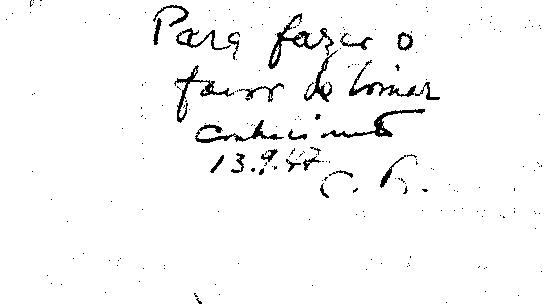 Para fazer o
favor de tomar
conhecimento
13.9.47
C. R.